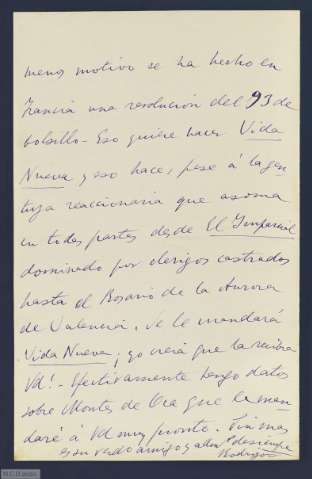 menos motivo se ha hecho en
Francia una revolución del 93 de
bolsillo - Eso quiere hacer Vida
Nueva y eso hace, pese á la gen
tuza reaccionaria que asoma
en todas partes desde El Imparcial
dominado por clérigos castrados
hasta el Rosario de la Aurora
de Valencia. Se le mandará
Vida Nueva; yo creia que la recibia
Vd! - Efectivamente tengo datos
sobre Montes de Oca que le man
daré á Vd muy pronto. Sin mas
es su verdº amigo y admor de siempre
Rodrigo